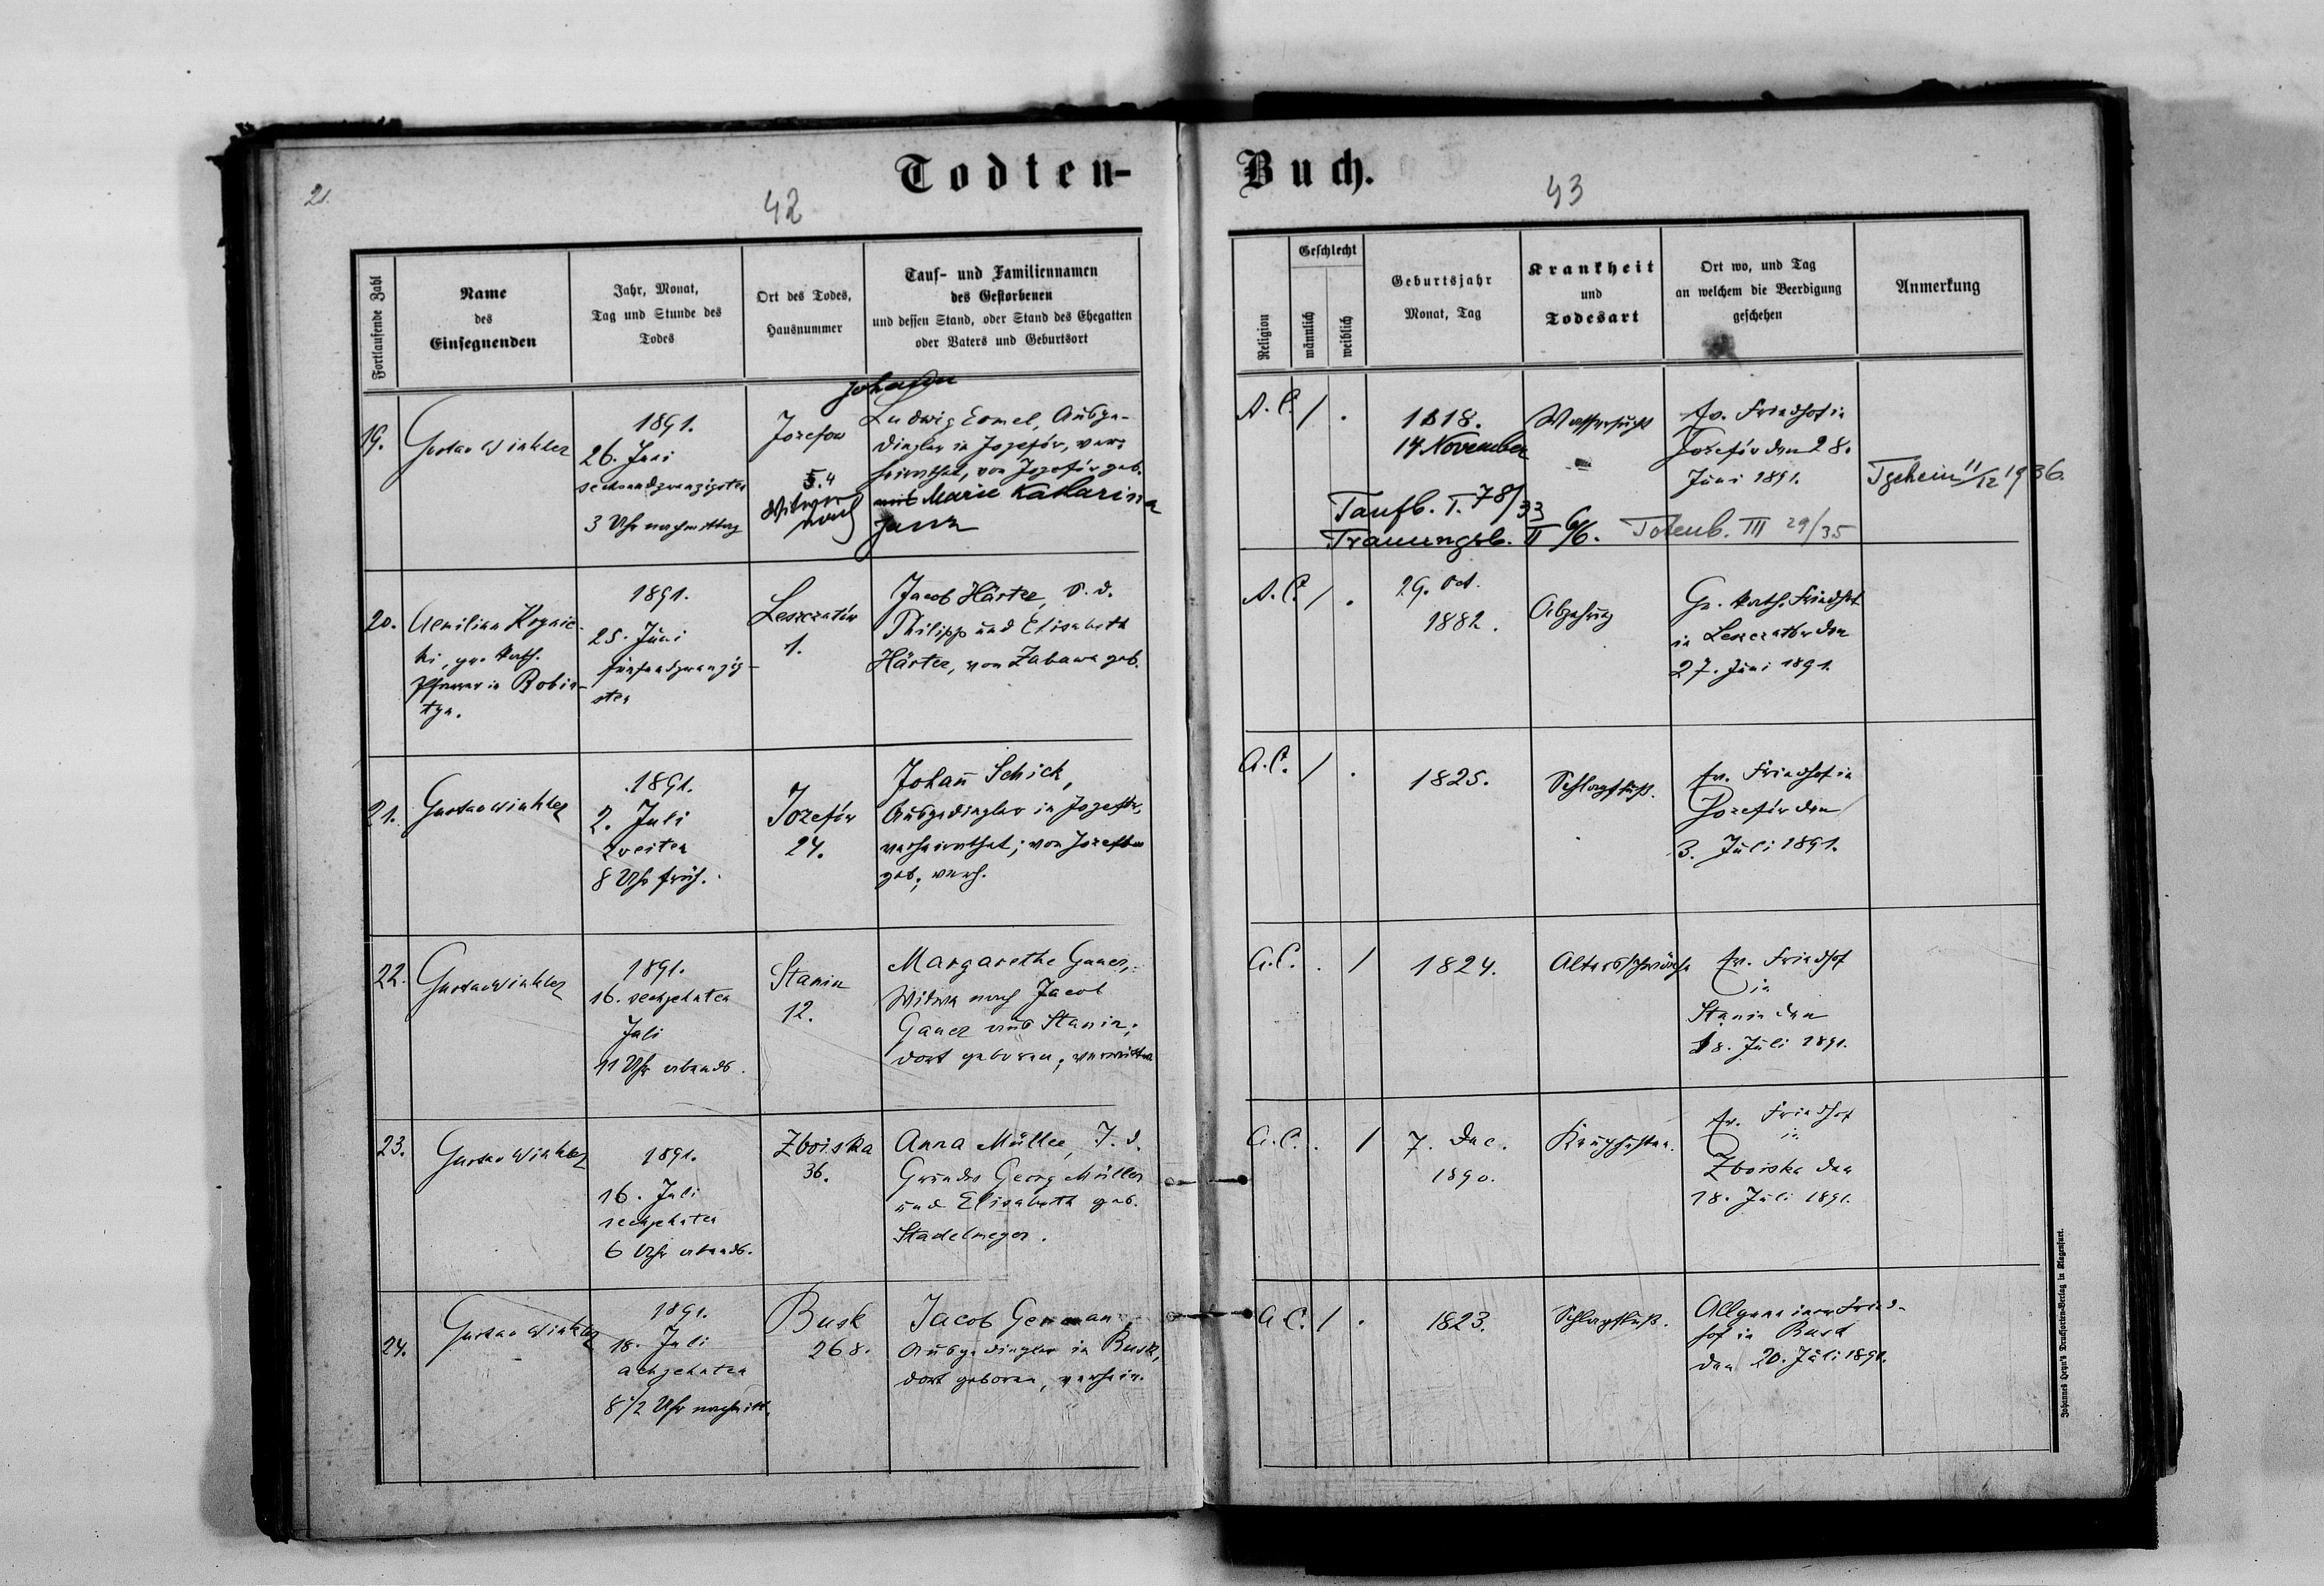 Todten-
Buch.
21.
42
43
Fortlaufende Zahl
Name
des
Einsegnenden
Jahr, Monat,
Tag und Stunde des
Todes
Ort des Todes,
Hausnummer
Tauf- und Familiennamen
des Gestorbenen
und dessen Stand, oder Stand des Ehegatten
oder Vaters und Geburtsort
Religion
Geschlecht
männlich
weiblich
Geburtsjahr
Monat, Tag
Krankheit
und
Todesart
Ort wo, und Tag
an welchem die Beerdigung
geschehen
Anmerkung
19.
Gustav Winkler
1891.
26. Juni
sechsundzwanzigsten
3 Uhr nachmittag
Jozefow
Witwer
nach
Johann
Ludwig Ausge-
dingler in Jozefów, ver-
heirathet, von Jozefów geb.
Marie Katharina
A. C.
/
.
1818.
14 November
Wassersucht
Ev. Friedhof in
Jozefów den 28.
Juni 1891.
11/12 1936.
Taufb. I. 78/33
Trauungsb. II 6/6.
Totenb. III 29/35
20.
gr. kath.
Pfarrer in
1891.
25. Juni
fünfundzwanzig-
sten
1.
Jacob Härter, S. d.
Philipp und Elisabeth
Härter, von Zabawa geb.
A. C.
/
.
29. Oct.
1882.
Abzehrung
Gr. kath. Friedhof
in den
27. Juni 1891.
21.
Gustav Winkler
1891.
2. Juli
zweiten
8 Uhr früh.
Jozefów
24.
Johañ Schick,
Ausgedingler in Jozefów,
verheirathet; von Jozefow
geb; verh.
A. C.
/
.
1825.
Schlagfluß.
Ev. Friedhof in
Jozefów den
3. Juli 1891.
22.
Gustav Winkler
1891.
16. sechzehnten
Juli
11 Uhr abends.
Stanin
12.
Margarethe Gauer,
Witwe nach Jacob
Gauer aus Stanin;
dort geboren; verwittwet
A. C.
.
/
1824.
Altersschwäche
Ev. Friedhof
in
Stanin den
18. Juli 1891.
23.
Gustav Winkler
1891.
16. Juli
sechzehnten
6 Uhr abends.
Zboiska
36.
Anna Müller, T. d.
Georg Müller
und Elisabeth geb.
Stadelmeyer.
A. C.
.
/
7. Dec.
1890.
Keuchhusten.
Ev. Friedhof
in
Zboiska den
18. Juli 1891.
24.
Gustav Winkler
1891.
18. Juli
achzehnten
8 1/2 Uhr nachmitt.
Busk
268.
Jacob German,
Ausgedingler in Busk,
dort geboren, verheir.
A. C.
/
.
1823.
Schlagfluß.
Allgemeiner Fried-
hof in Busk
den 20. Juli 1891.
Johannes Heyn's Drucksorten-Verlag in Klagenfurt.